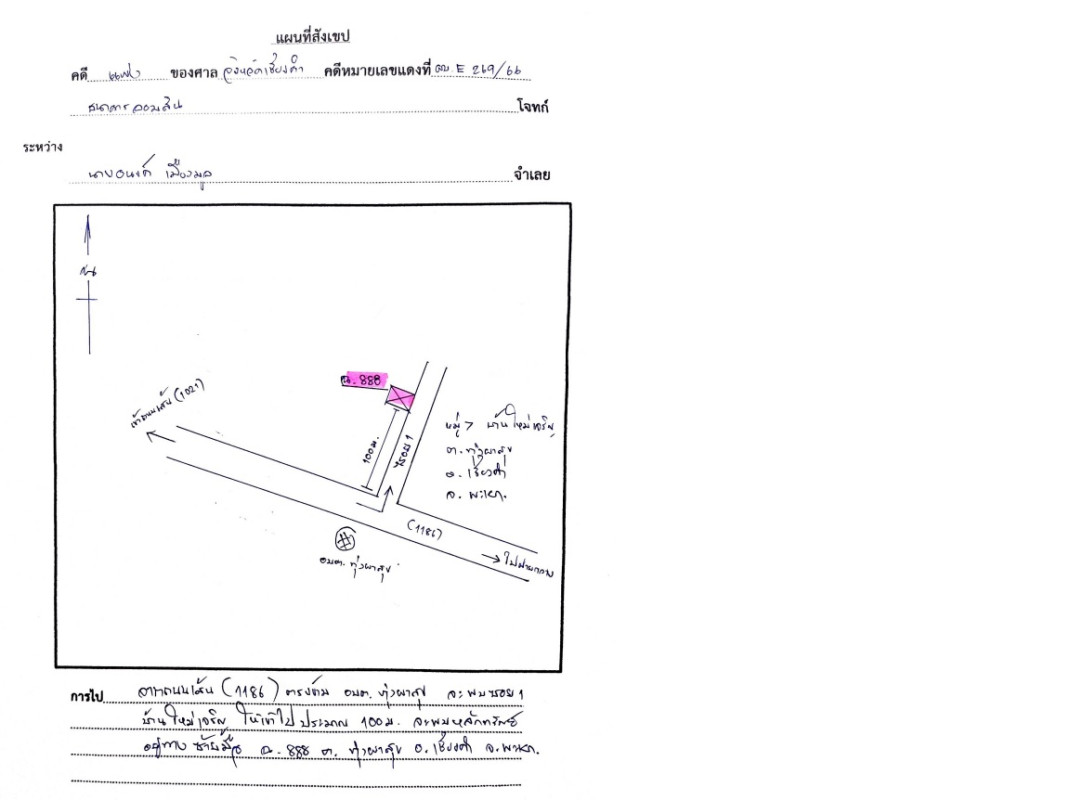 แผนที่สังเขป
คดี แพ่ง ของศาล จังหวัดเชียงคำ คดีหมายเลขแดงที่ ผบ E 269/66
ธนาคารออมสิน โจทก์
ระหว่าง
จำเลย
น.
ฉ. 888
เข้าถนนเส้น (1021)
100 ม.
ซอย 1
หมู่ 7 บ้านใหม่เจริญ
ต. ทุ่งผาสุข
อ. เชียงคำ
จ. พะเยา.
(1186)
อบต. ทุ่งผาสุข
การไป จากถนนเส้น (1186) ตรงข้าม อบต. ทุ่งผาสุข จะพบซอย 1
บ้านใหม่เจริญ ให้เข้าไป ประมาณ 100 ม. จะพบหลักทรัพย์
อยู่ทาง ซ้ายมือ ฉ. 888 ต. ทุ่งผาสุข อ. เชียงคำ จ. พะเยา.